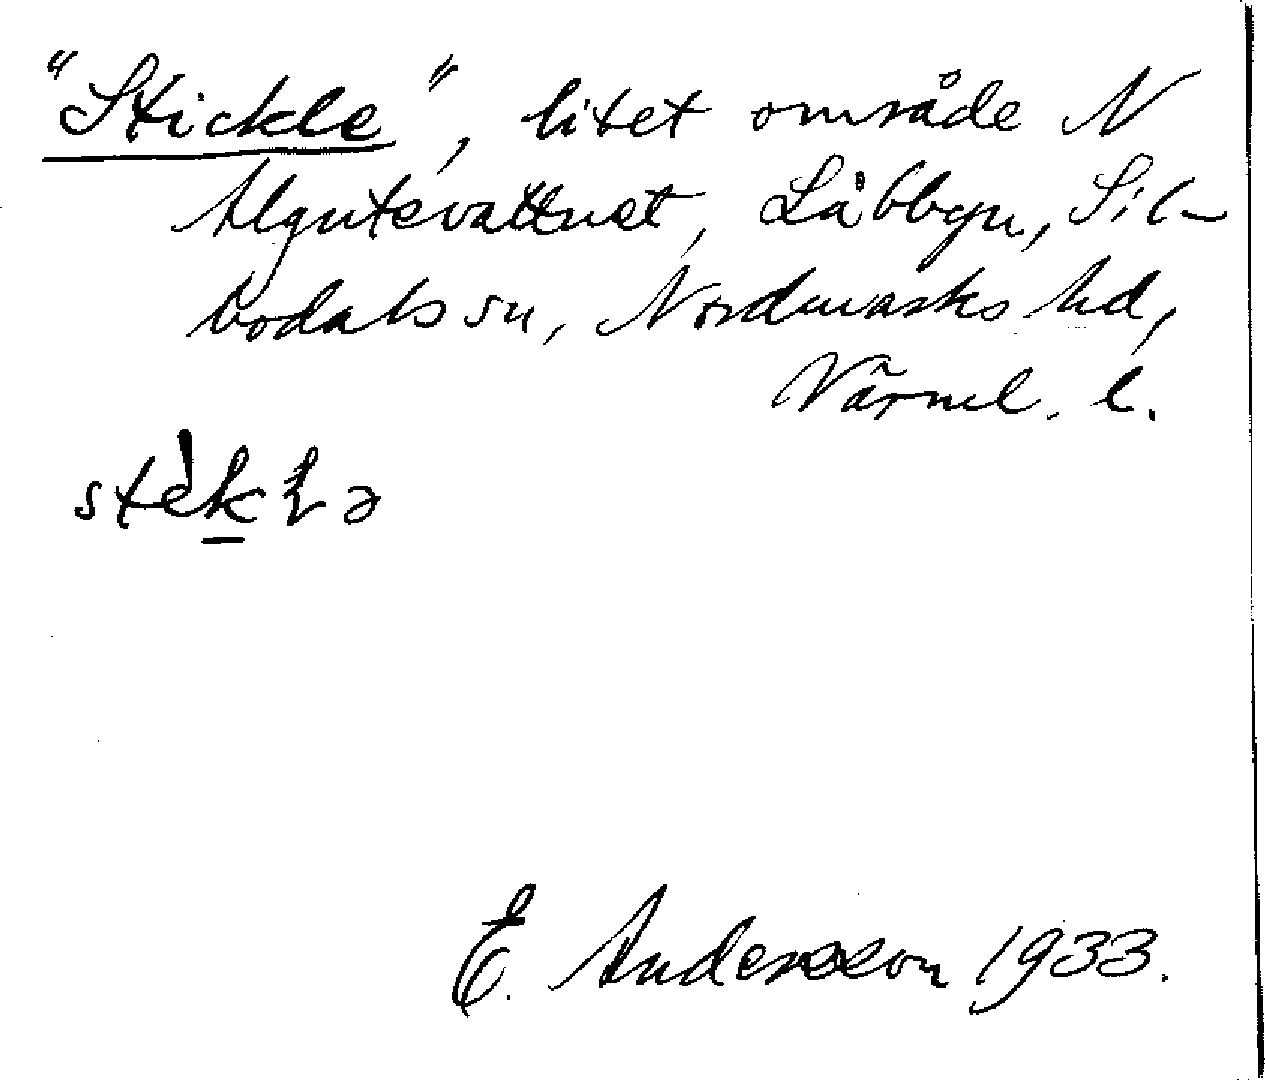 "Stickle", litet område N
Algutevattnet, Låbbyn, Sil-
bodals sn, Nordmarks hd,
Värml. l.
E. Andersson 1933.